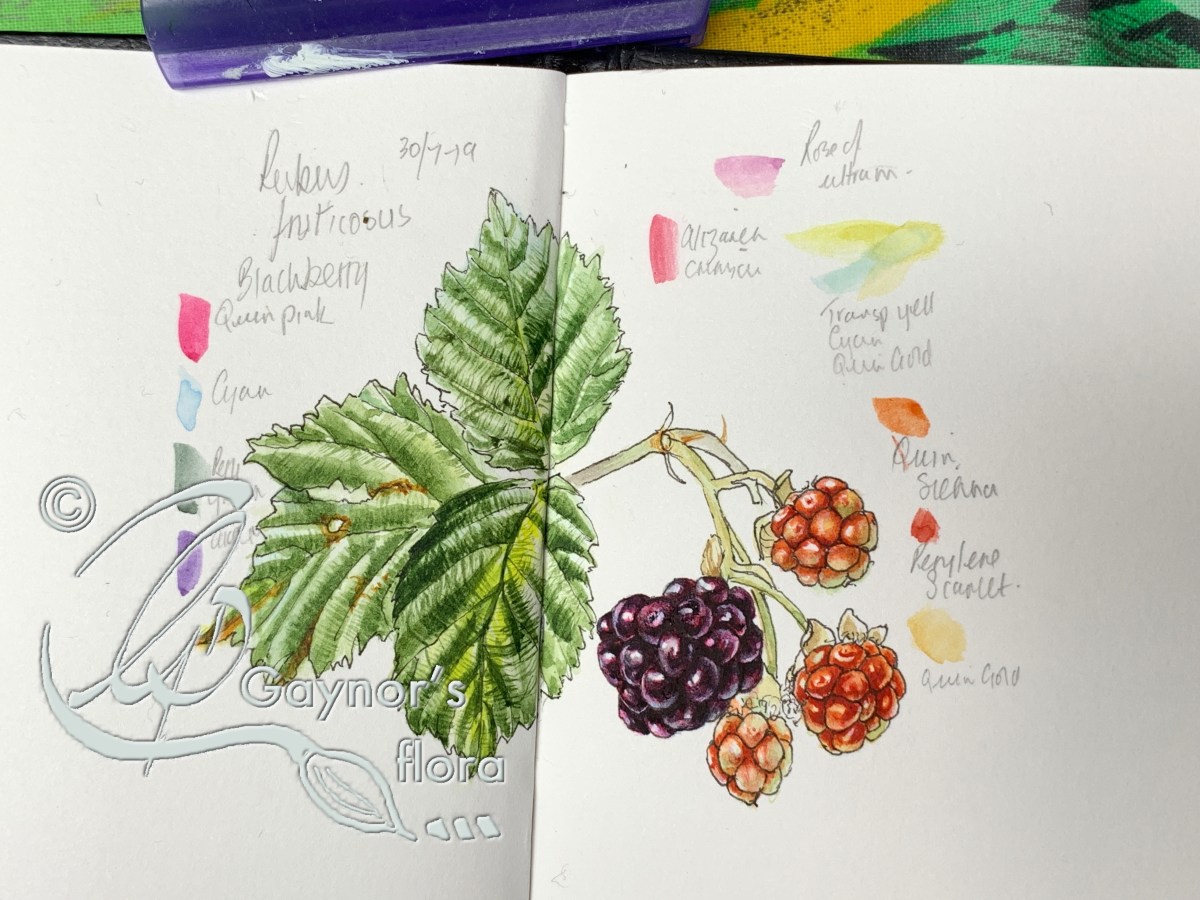 Rubus
30/7-19
fruticosus
Blackberry
Quin pink
Cyan
Rose of
ultram-
Alizarin
Crimson
Transp yell
Cyan
Quin Gold
Quin.
Sienna
Perylene
Scarlet.
Quin Gold
©
Gaynor's
flora